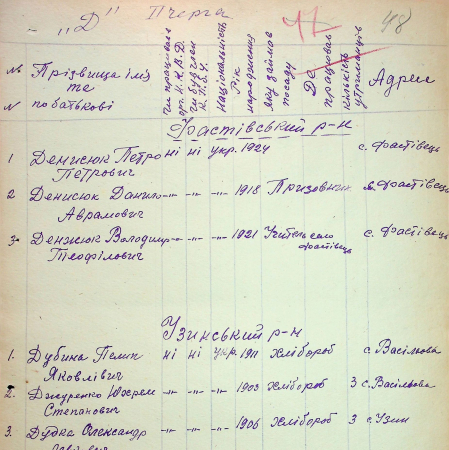 „Д" П черга
48
№ № Прізвища імя та по батькові
Чи працював в орг. Н.К.В.Д.
Чи був член К.П.б.У.
Національність
Рік народження
Яку займав посаду
Де працював
Кількість утриманців
Адрес
Фастівський р-н
1 Денисюк Петро ні ні укр. 1924 с. Фастівець
Петрович
2 Денисюк Данило -"- -"- -"- 1918 Призовник с. Фастівець
Аврамович
3. Денисюк Володимир -"- -"- 1921 Учитель село Фастівець с. Фастівець
Теофілович
Узинський р-н
1. Дубина Пелип ні ні укр. 1911 Хлібороб с. Василькова
Яковлівич
2. Джуренко Юхрем -"- -"- -"- 1903 Хлібороб 3 с. Василькова
Степанович
3. Дудка Олександр -"- -"- -"- 1906 Хлібороб 3 с. Узин